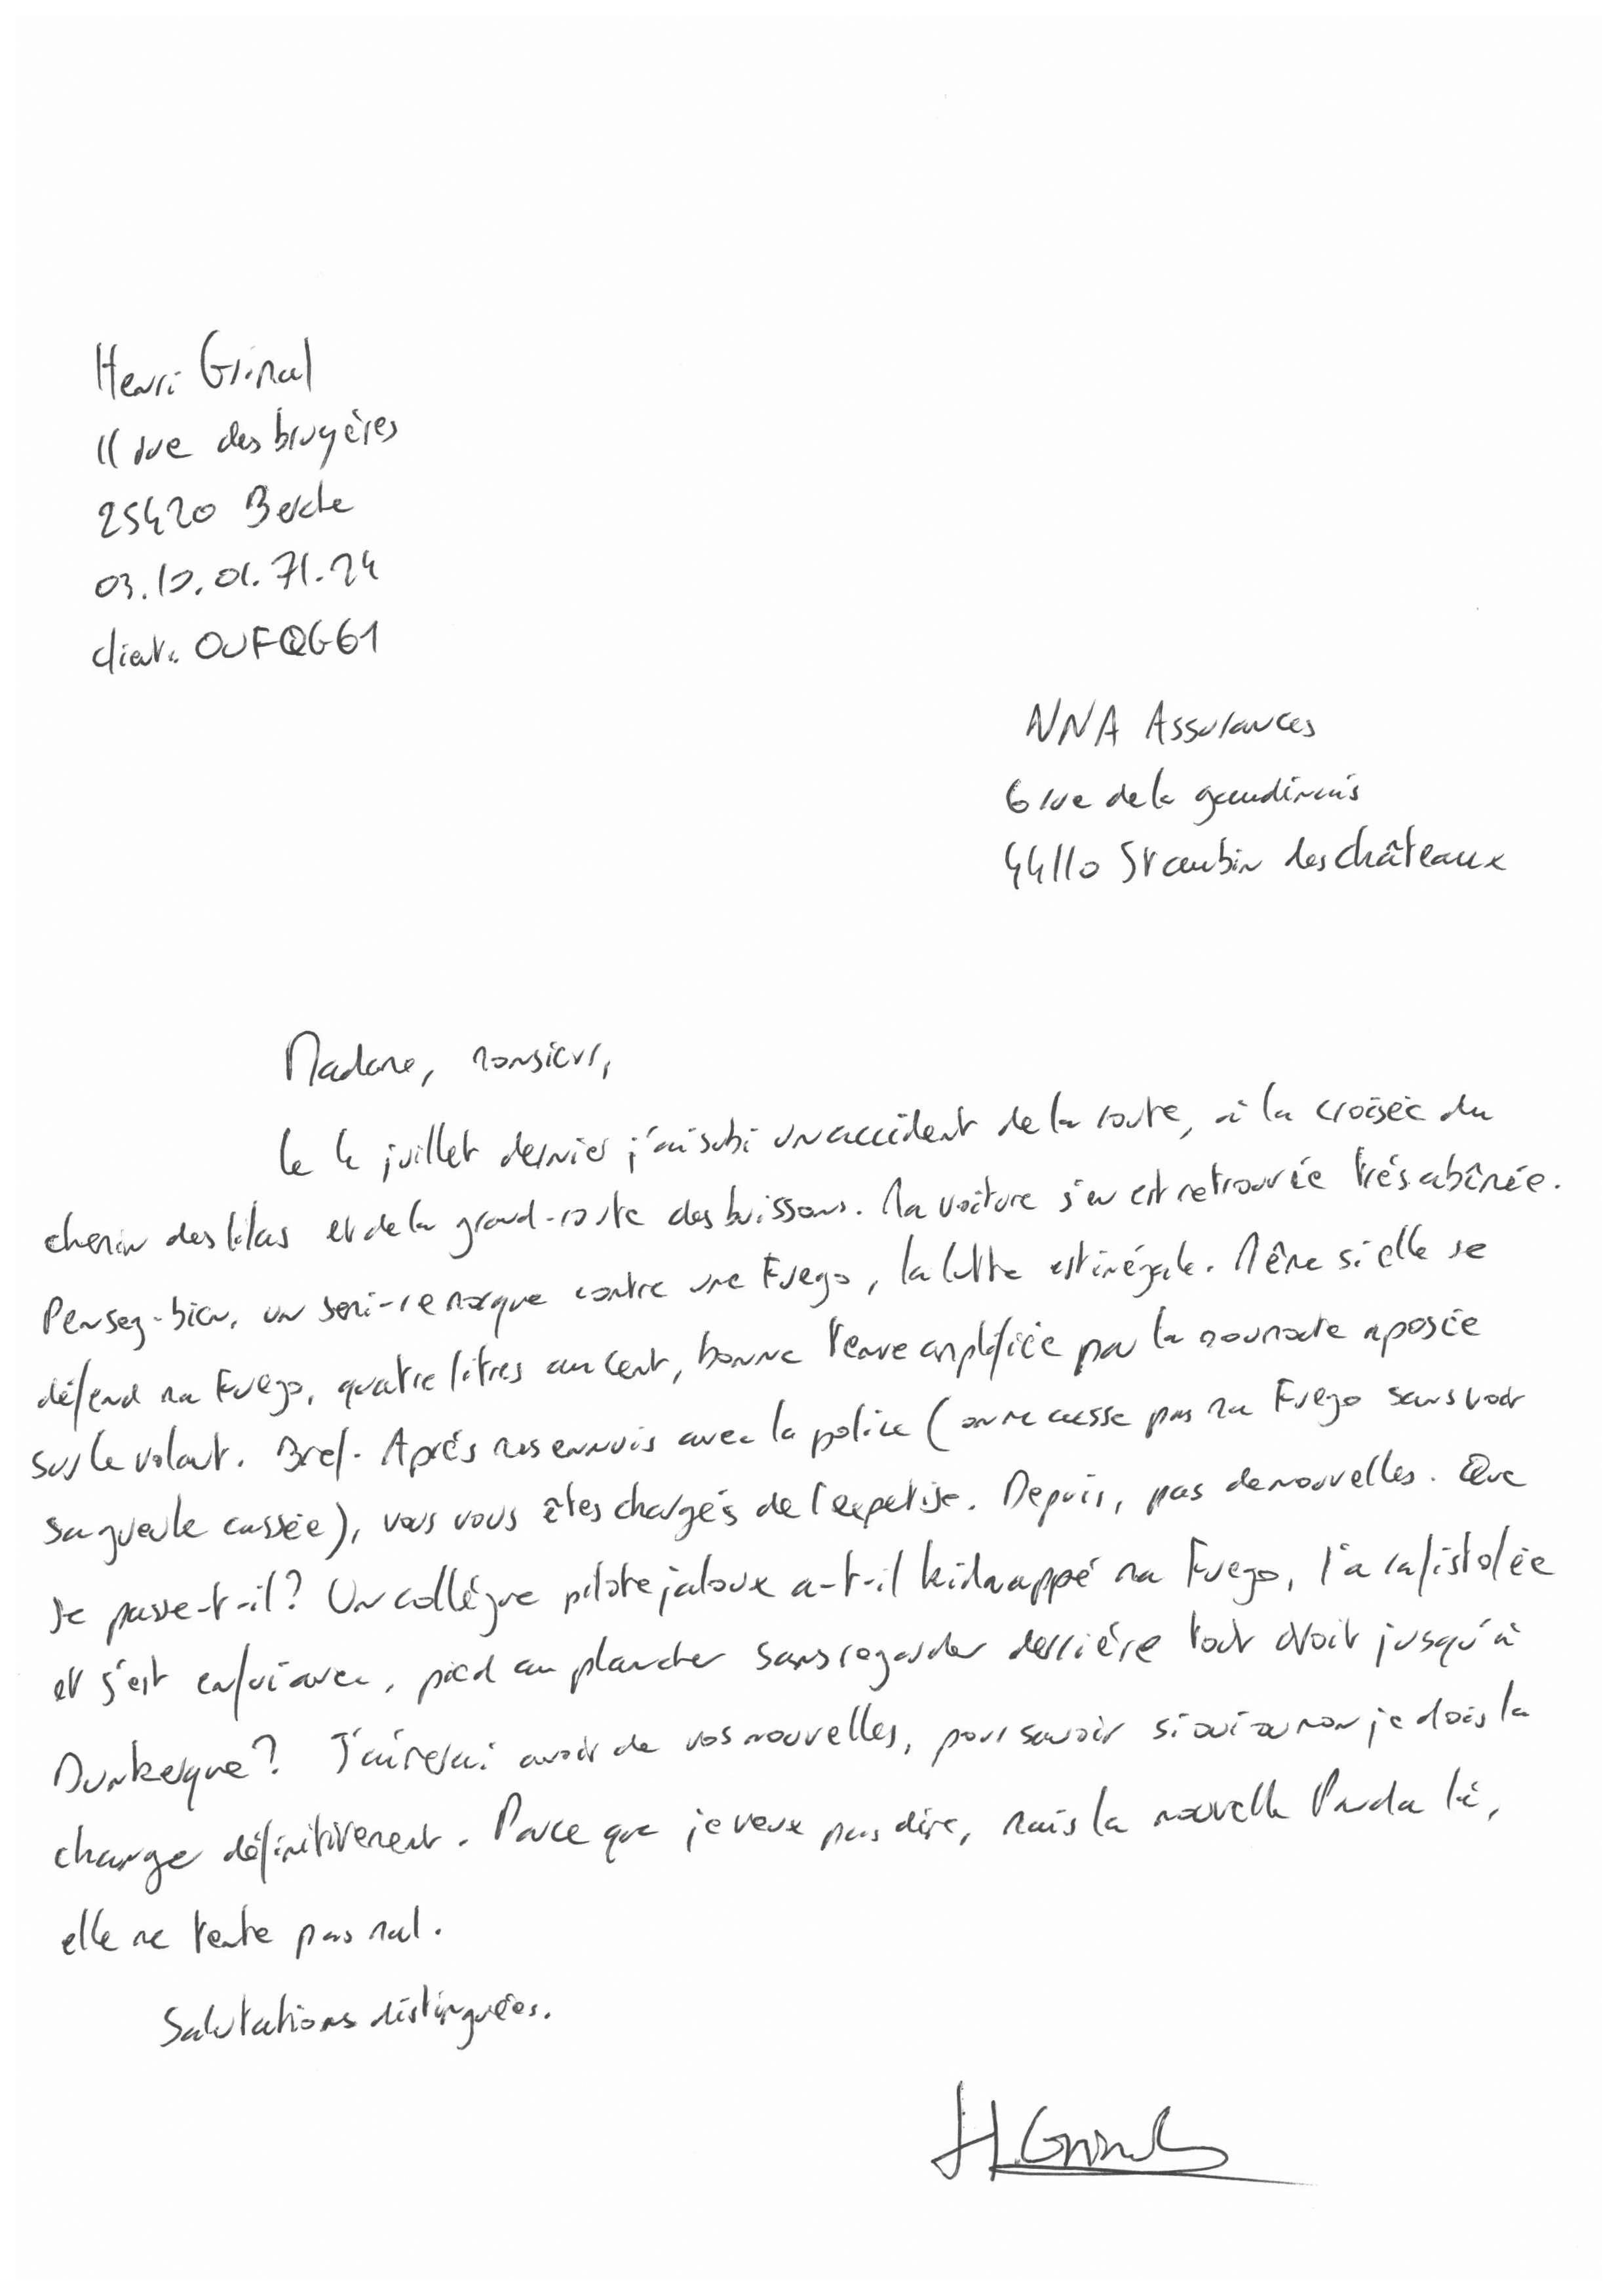 Henri Grimal
11 rue des bruyères
25420 Berche
03.10.01.71.24
client: OUFQG61
NNA Assurances
6 rue de la gaudinais
44110 St aubin des châteaux
Madame, monsieur,
le 4 juillet dernier j'ai subi un accident de la route, à la croisée du
chemin des lilas et de la grand-route des buissons. Ma voiture s'en est retrouvée très abîmée.
Pensez-bien, un semi-remorque contre une Fuego, la lutte est inégale. Même si elle se
défend ma Fuego, quatre litres au cent, bonne tenue amplifiée par la moumoute aposée
sur le volant. Bref. Après mes ennuis avec la police (on ne casse pas ma Fuego sans voir
sa gueule cassée), vous vous êtes chargés de l'expertise. Depuis, pas de nouvelles. Que
se passe-t-il? Un collègue pilote jaloux a-t-il kidnappé ma Fuego, l'a rafistolée
et s'est enfui avec, pied au plancher sans regarder derrière tout droit jusqu'à
Dunkerque? J'aimerai avoir de vos nouvelles, pour savoir si oui ou non je dois la
changer définitivement. Parce que je veux pas dire, mais la nouvelle Panda là,
elle me tente pas mal.
Salutations distinguées.
H.Grimal